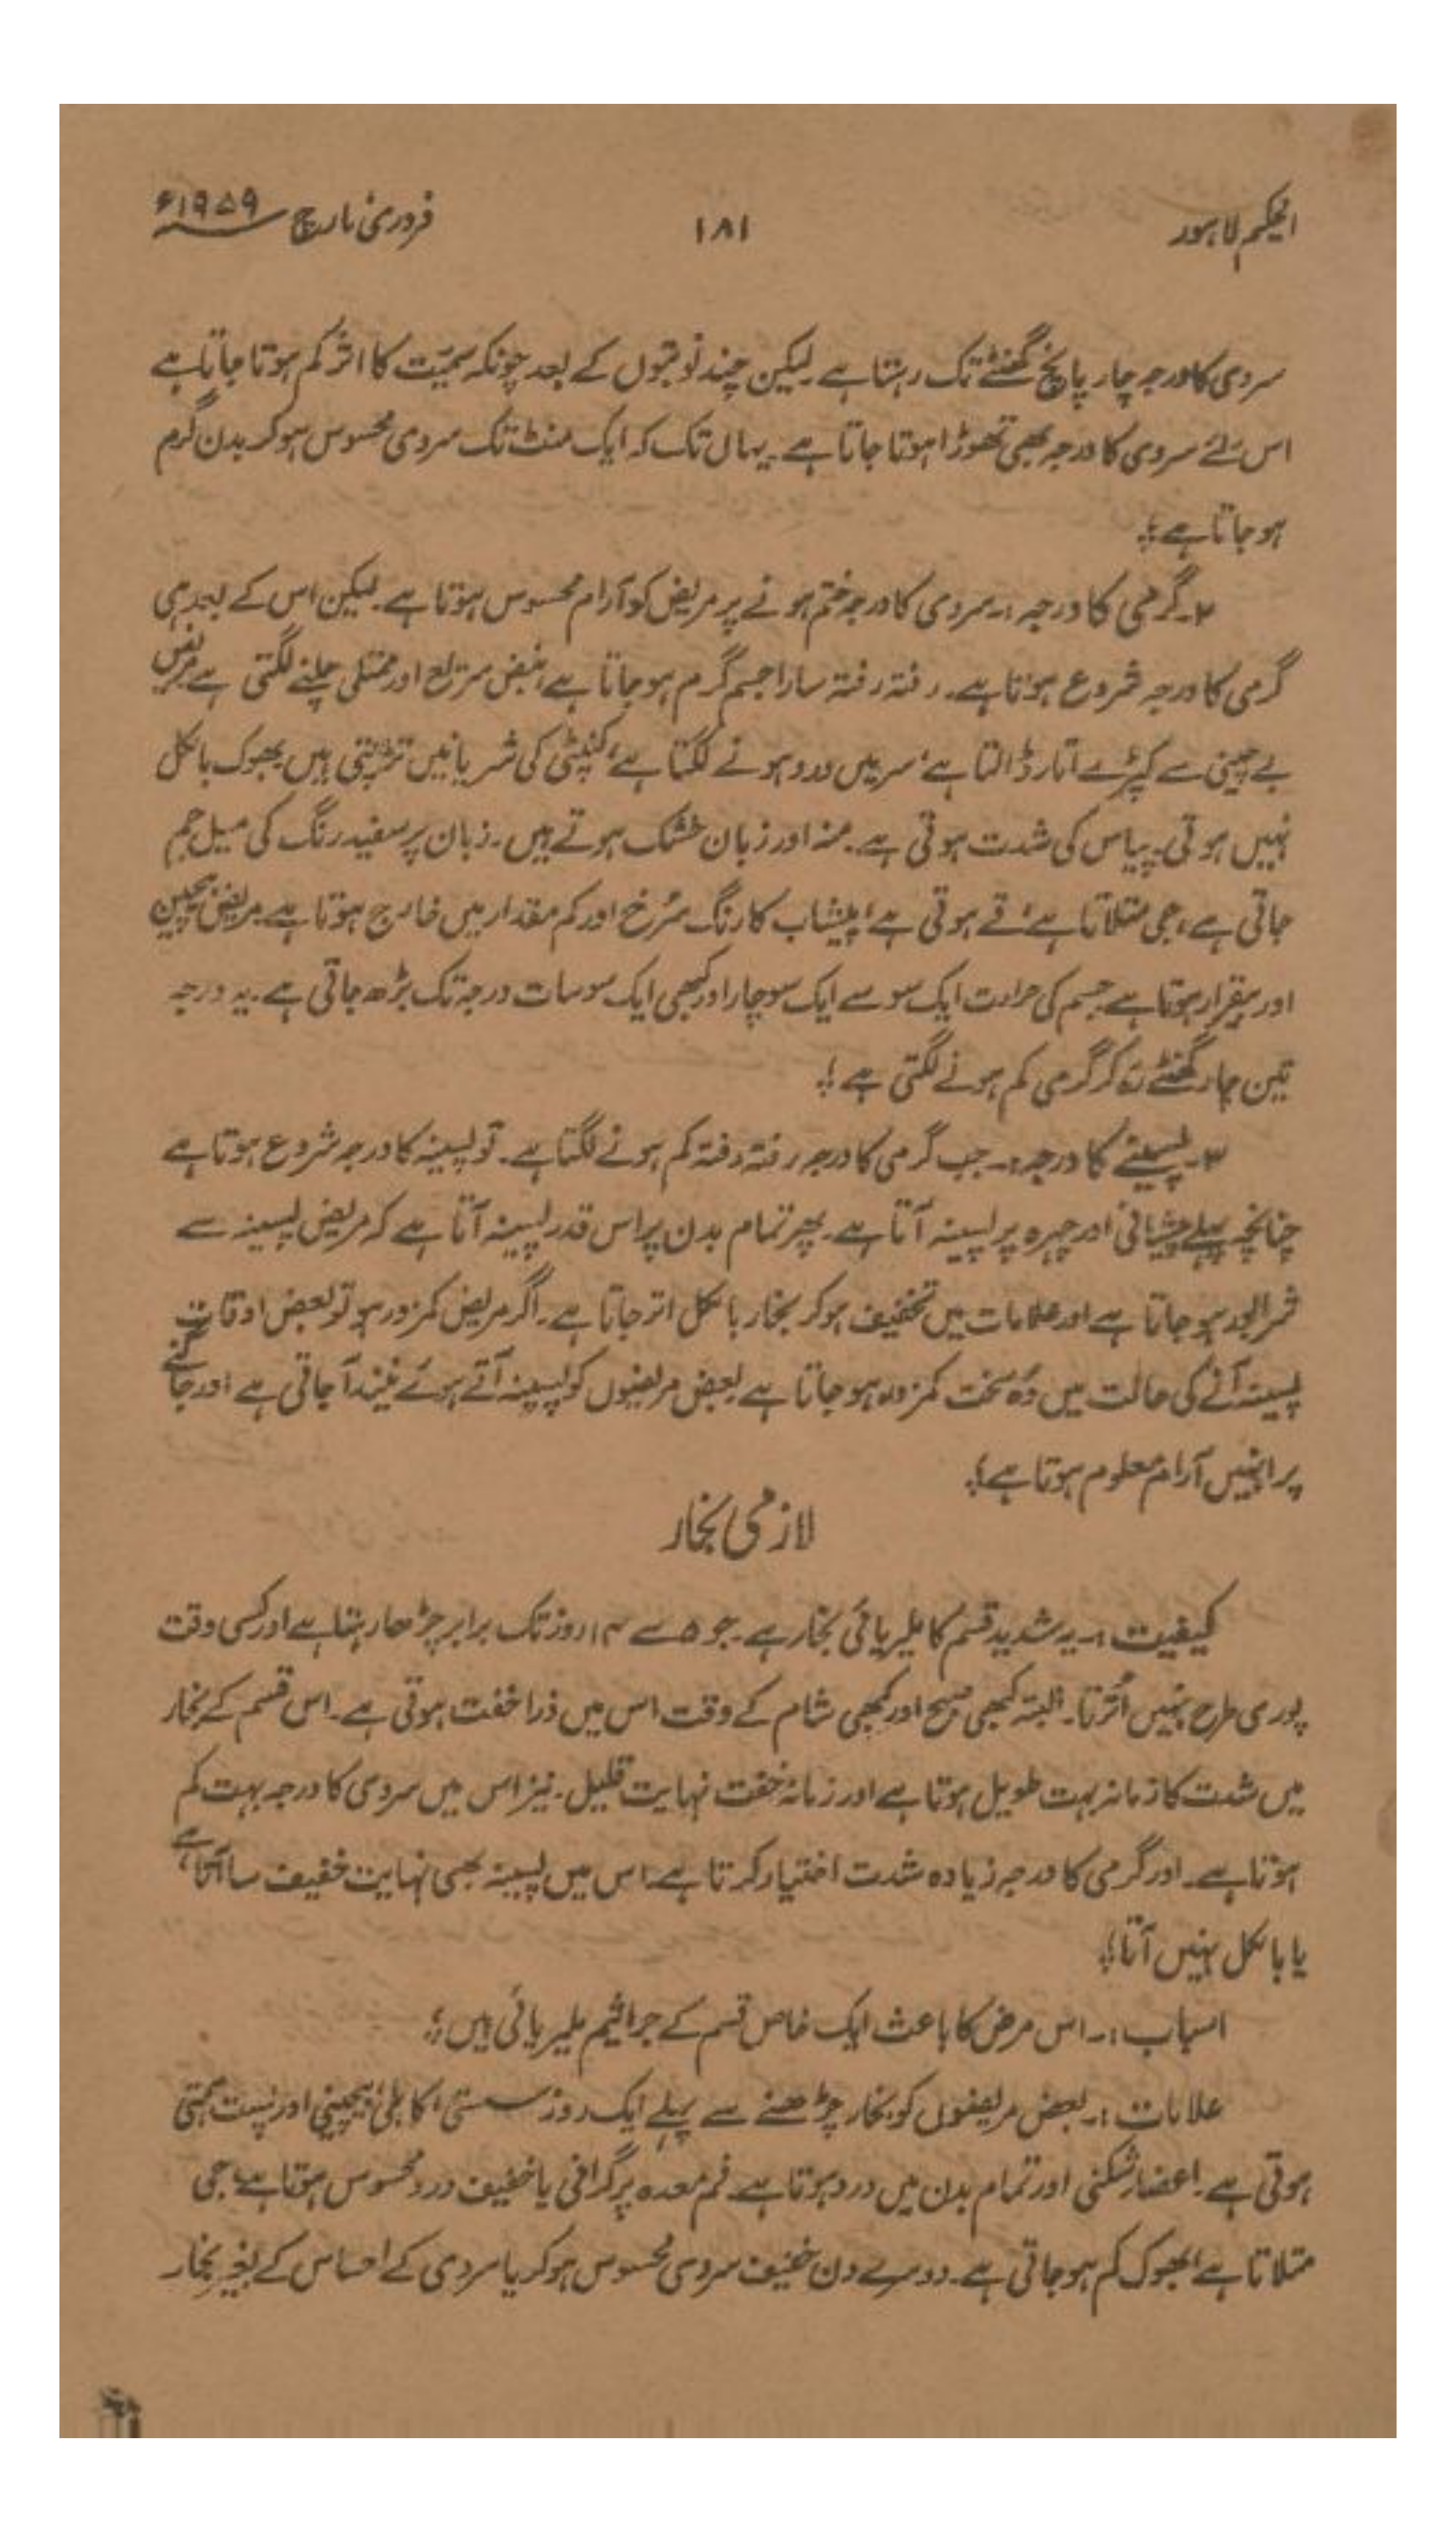 الحکیم لاہور ۱۸۱ فروری مارچ ۱۹۵۹ء
سردی کا درجہ چار پانچ گھنٹے تک رہتا ہے۔ لیکن چند نوبتوں کے بعد چونکہ سمیّت کا اثر کم ہوتا جاتا ہے
اس لئے سردی کا درجہ بھی تھوڑا ہوتا جاتا ہے۔ یہاں تک کہ ایک منٹ تک سردی محسوس ہوکر بدن گرم
ہو جاتا ہے؛
۲۔ گرمی کا درجہ:۔ سردی کا درجہ ختم ہونے پر مریض کو آرام محسوس ہوتا ہے۔ لیکن اس کے بعد ہی
گرمی کا درجہ شروع ہوتا ہے۔ رفتہ رفتہ سارا جسم گرم ہو جاتا ہے، نبض سریع اور ممتلی چلنے لگتی ہے مریض
بے چینی سے کپڑے اتار ڈالتا ہے، سر میں درد ہونے لگتا ہے، کنپٹی کی شریانیں تڑپتی ہیں بھوک بالکل
نہیں ہوتی۔ پیاس کی شدت ہوتی ہے۔ منہ اور زبان خشک ہوتے ہیں۔ زبان پر سفید رنگ کی میل جم
جاتی ہے، جی متلاتا ہے، قے ہوتی ہے، پیشاب کا رنگ سُرخ اور کم مقدار میں خارج ہوتا ہے۔ مریض بیچین
اور بیقرار ہوتا ہے جسم کی حرارت ایک سو سے ایک سو چار اور کبھی ایک سو سات درجہ تک بڑھ جاتی ہے۔ یہ درجہ
تین چار گھنٹے رہ کر گرمی کم ہونے لگتی ہے؛
۳۔ پسینے کا درجہ:۔ جب گرمی کا درجہ رفتہ رفتہ کم ہونے لگتا ہے۔ تو پسینہ کا درجہ شروع ہوتا ہے
چنانچہ پہلے پیشانی اور چہرہ پر پسینہ آتا ہے۔ پھر تمام بدن پر اس قدر پسینہ آتا ہے کہ مریض پسینہ سے
شرابور ہو جاتا ہے اور علامات میں تخفیف ہوکر بخار بالکل اتر جاتا ہے۔ اگر مریض کمزور ہو تو بعض اوقات
پسینہ آنے کی حالت میں وُہ سخت کمزور ہو جاتا ہے بعض مریضوں کو پسینہ آتے ہوئے نیند آ جاتی ہے اور جاگنے
پر انہیں آرام معلوم ہوتا ہے؛
لازمی بخار
کیفیت:۔ یہ شدید قسم کا ملیریائی بخار ہے۔ جو ۵ سے ۱۴ روز تک برابر چڑھا رہتا ہے اور کسی وقت
پوری طرح نہیں اُترتا۔ البتہ کبھی صبح اور کبھی شام کے وقت اس میں ذرا خفت ہوتی ہے۔ اس قسم کے بخار
میں شدت کا زمانہ بہت طویل ہوتا ہے اور زمانۂ خفت نہایت قلیل۔ نیز اس میں سردی کا درجہ بہت کم
ہوتا ہے۔ اور گرمی کا درجہ زیادہ شدت اختیار کرتا ہے۔ اس میں پسینہ بھی نہایت خفیف سا آتا ہے،
یا بالکل نہیں آتا؛
اسباب:۔ اس مرض کا باعث ایک خاص قسم کے جراثیم ملیریائی ہیں؛
علامات:۔ بعض مریضوں کو بخار چڑھنے سے پہلے ایک روز سستی، کاہلی، بیچینی اور پست ہمتی
ہوتی ہے۔ اعضا شکنی اور تمام بدن میں درد ہوتا ہے۔ فم معدہ پر گرانی یا خفیف درد محسوس ہوتا ہے۔ جی
متلاتا ہے، بھوک کم ہو جاتی ہے۔ دوسرے دن خفیف سردی محسوس ہوکر یا سردی کے احساس کے بغیر بخار